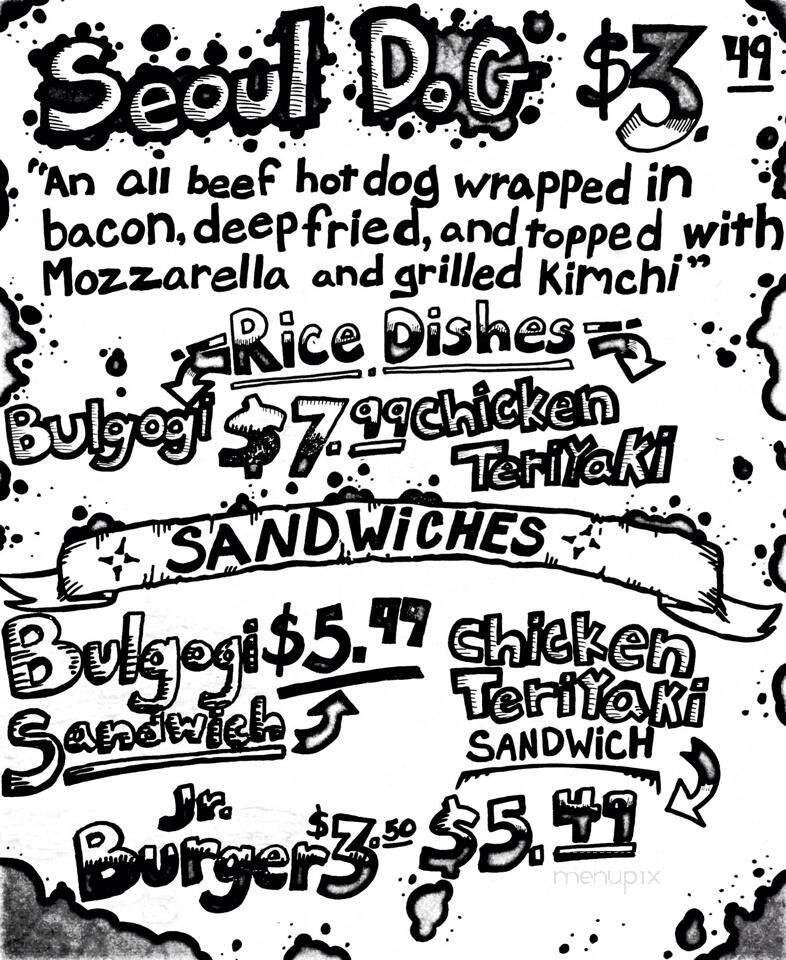 Seoul DoG $3.49
"An all beef hotdog wrapped in
bacon, deep fried, and topped with
Mozzarella and grilled Kimchi"
Rice Dishes
Bulgogi $7.99 Chicken
TeriYaki
SANDWiCHES
Bulgogi $5.99
Sandwich
Chicken
TeriYaki
SANDWiCH
$5.49
Jr.
Burger $3.50
menupix